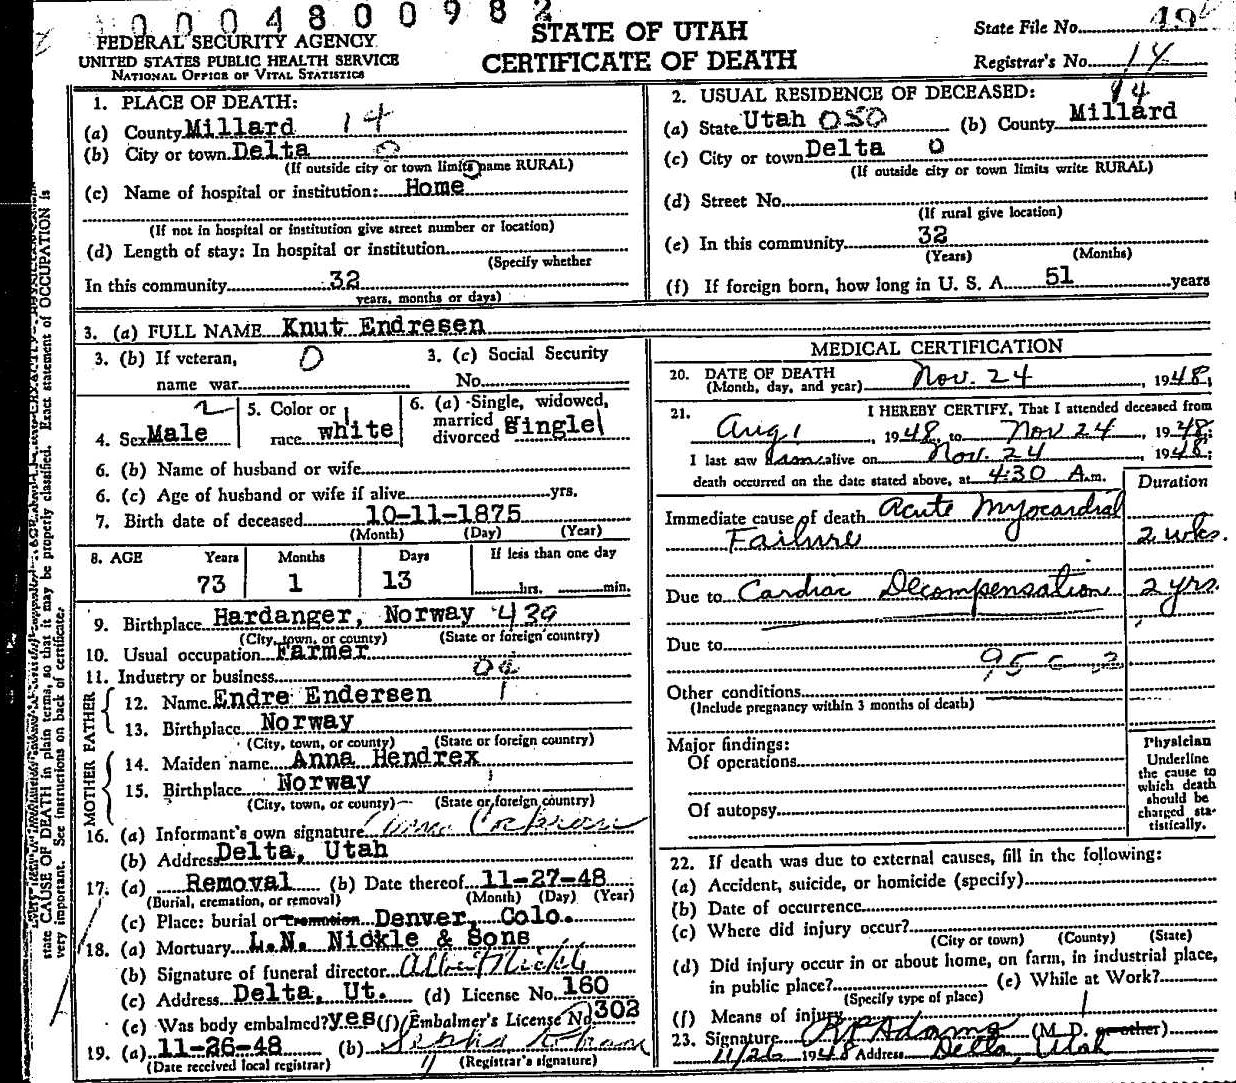 0 0 0 4 8 0 0 9 8 2
FEDERAL SECURITY AGENCY
UNITED STATES PUBLIC HEALTH SERVICE
NATIONAL OFFICE OF VITAL STATISTICS
STATE OF UTAH
CERTIFICATE OF DEATH
State File No.
Registrar's No. 14
1. PLACE OF DEATH:
(a) County Millard 14
(b) City or town Delta 0
(If outside city or town limits name RURAL)
(c) Name of hospital or institution: Home
(If not in hospital or institution give street number or location)
(d) Length of stay: In hospital or institution
(Specify whether
In this community 32
years, months or days)
2. USUAL RESIDENCE OF DECEASED: 14
(a) State Utah 050 (b) County Millard
(c) City or town Delta 0
(If outside city or town limits write RURAL)
(d) Street No.
(If rural give location)
(e) In this community 32
(Years) (Months)
(f) If foreign born, how long in U. S. A. 51 years
3. (a) FULL NAME Knut Endresen
3. (b) If veteran, 0
name war
3. (c) Social Security
No.
4. Sex Male 2
5. Color or
race white
6. (a) Single, widowed,
married
divorced Single
6. (b) Name of husband or wife
6. (c) Age of husband or wife if alive yrs.
7. Birth date of deceased 10-11-1875
(Month) (Day) (Year)
8. AGE Years Months Days If less than one day
73 1 13 hrs. min.
9. Birthplace Hardanger, Norway 439
(City, town, or county) (State or foreign country)
10. Usual occupation Farmer
11. Industry or business
FATHER
12. Name Endre Endersen
13. Birthplace Norway
(City, town, or county) (State or foreign country)
MOTHER
14. Maiden name Anna Hendrex
15. Birthplace Norway
(City, town, or county) (State or foreign country)
16. (a) Informant's own signature
(b) Address Delta, Utah
17. (a) Removal (b) Date thereof 11-27-48
(Burial, cremation, or removal) (Month) (Day) (Year)
(c) Place: burial or cremation Denver, Colo.
18. (a) Mortuary L.N. Nickle & Sons
(b) Signature of funeral director
(c) Address Delta, Ut. (d) License No. 160
(e) Was body embalmed? yes (f) Embalmer's License No 302
19. (a) 11-26-48 (b)
(Date received local registrar) (Registrar's signature)
MEDICAL CERTIFICATION
20. DATE OF DEATH
(Month, day, and year) Nov. 24, 1948;
21. I HEREBY CERTIFY, That I attended deceased from
Aug 1, 1948, to Nov 24, 1948;
I last saw him alive on Nov. 24, 1948;
death occurred on the date stated above, at 4:30 A.m.
Duration
Immediate cause of death Acute Myocardial
Failure 2 wks.
Due to Cardiac Decompensation 2 yrs.
Due to
95 c 2
Other conditions
(Include pregnancy within 3 months of death)
Major findings:
Of operations
Of autopsy
Physician
Underline
the cause to
which death
should be
charged sta-
tistically.
22. If death was due to external causes, fill in the following:
(a) Accident, suicide, or homicide (specify)
(b) Date of occurrence
(c) Where did injury occur?
(City or town) (County) (State)
(d) Did injury occur in or about home, on farm, in industrial place,
in public place? (e) While at Work?
(Specify type of place)
(f) Means of injury
23. Signature Adams (M. D. or other)
11/26 1948 Address Delta, Utah
state CAUSE OF DEATH in plain terms, so that it may be properly classified. Exact statement of OCCUPATION is
very important. See instructions on back of certificate.